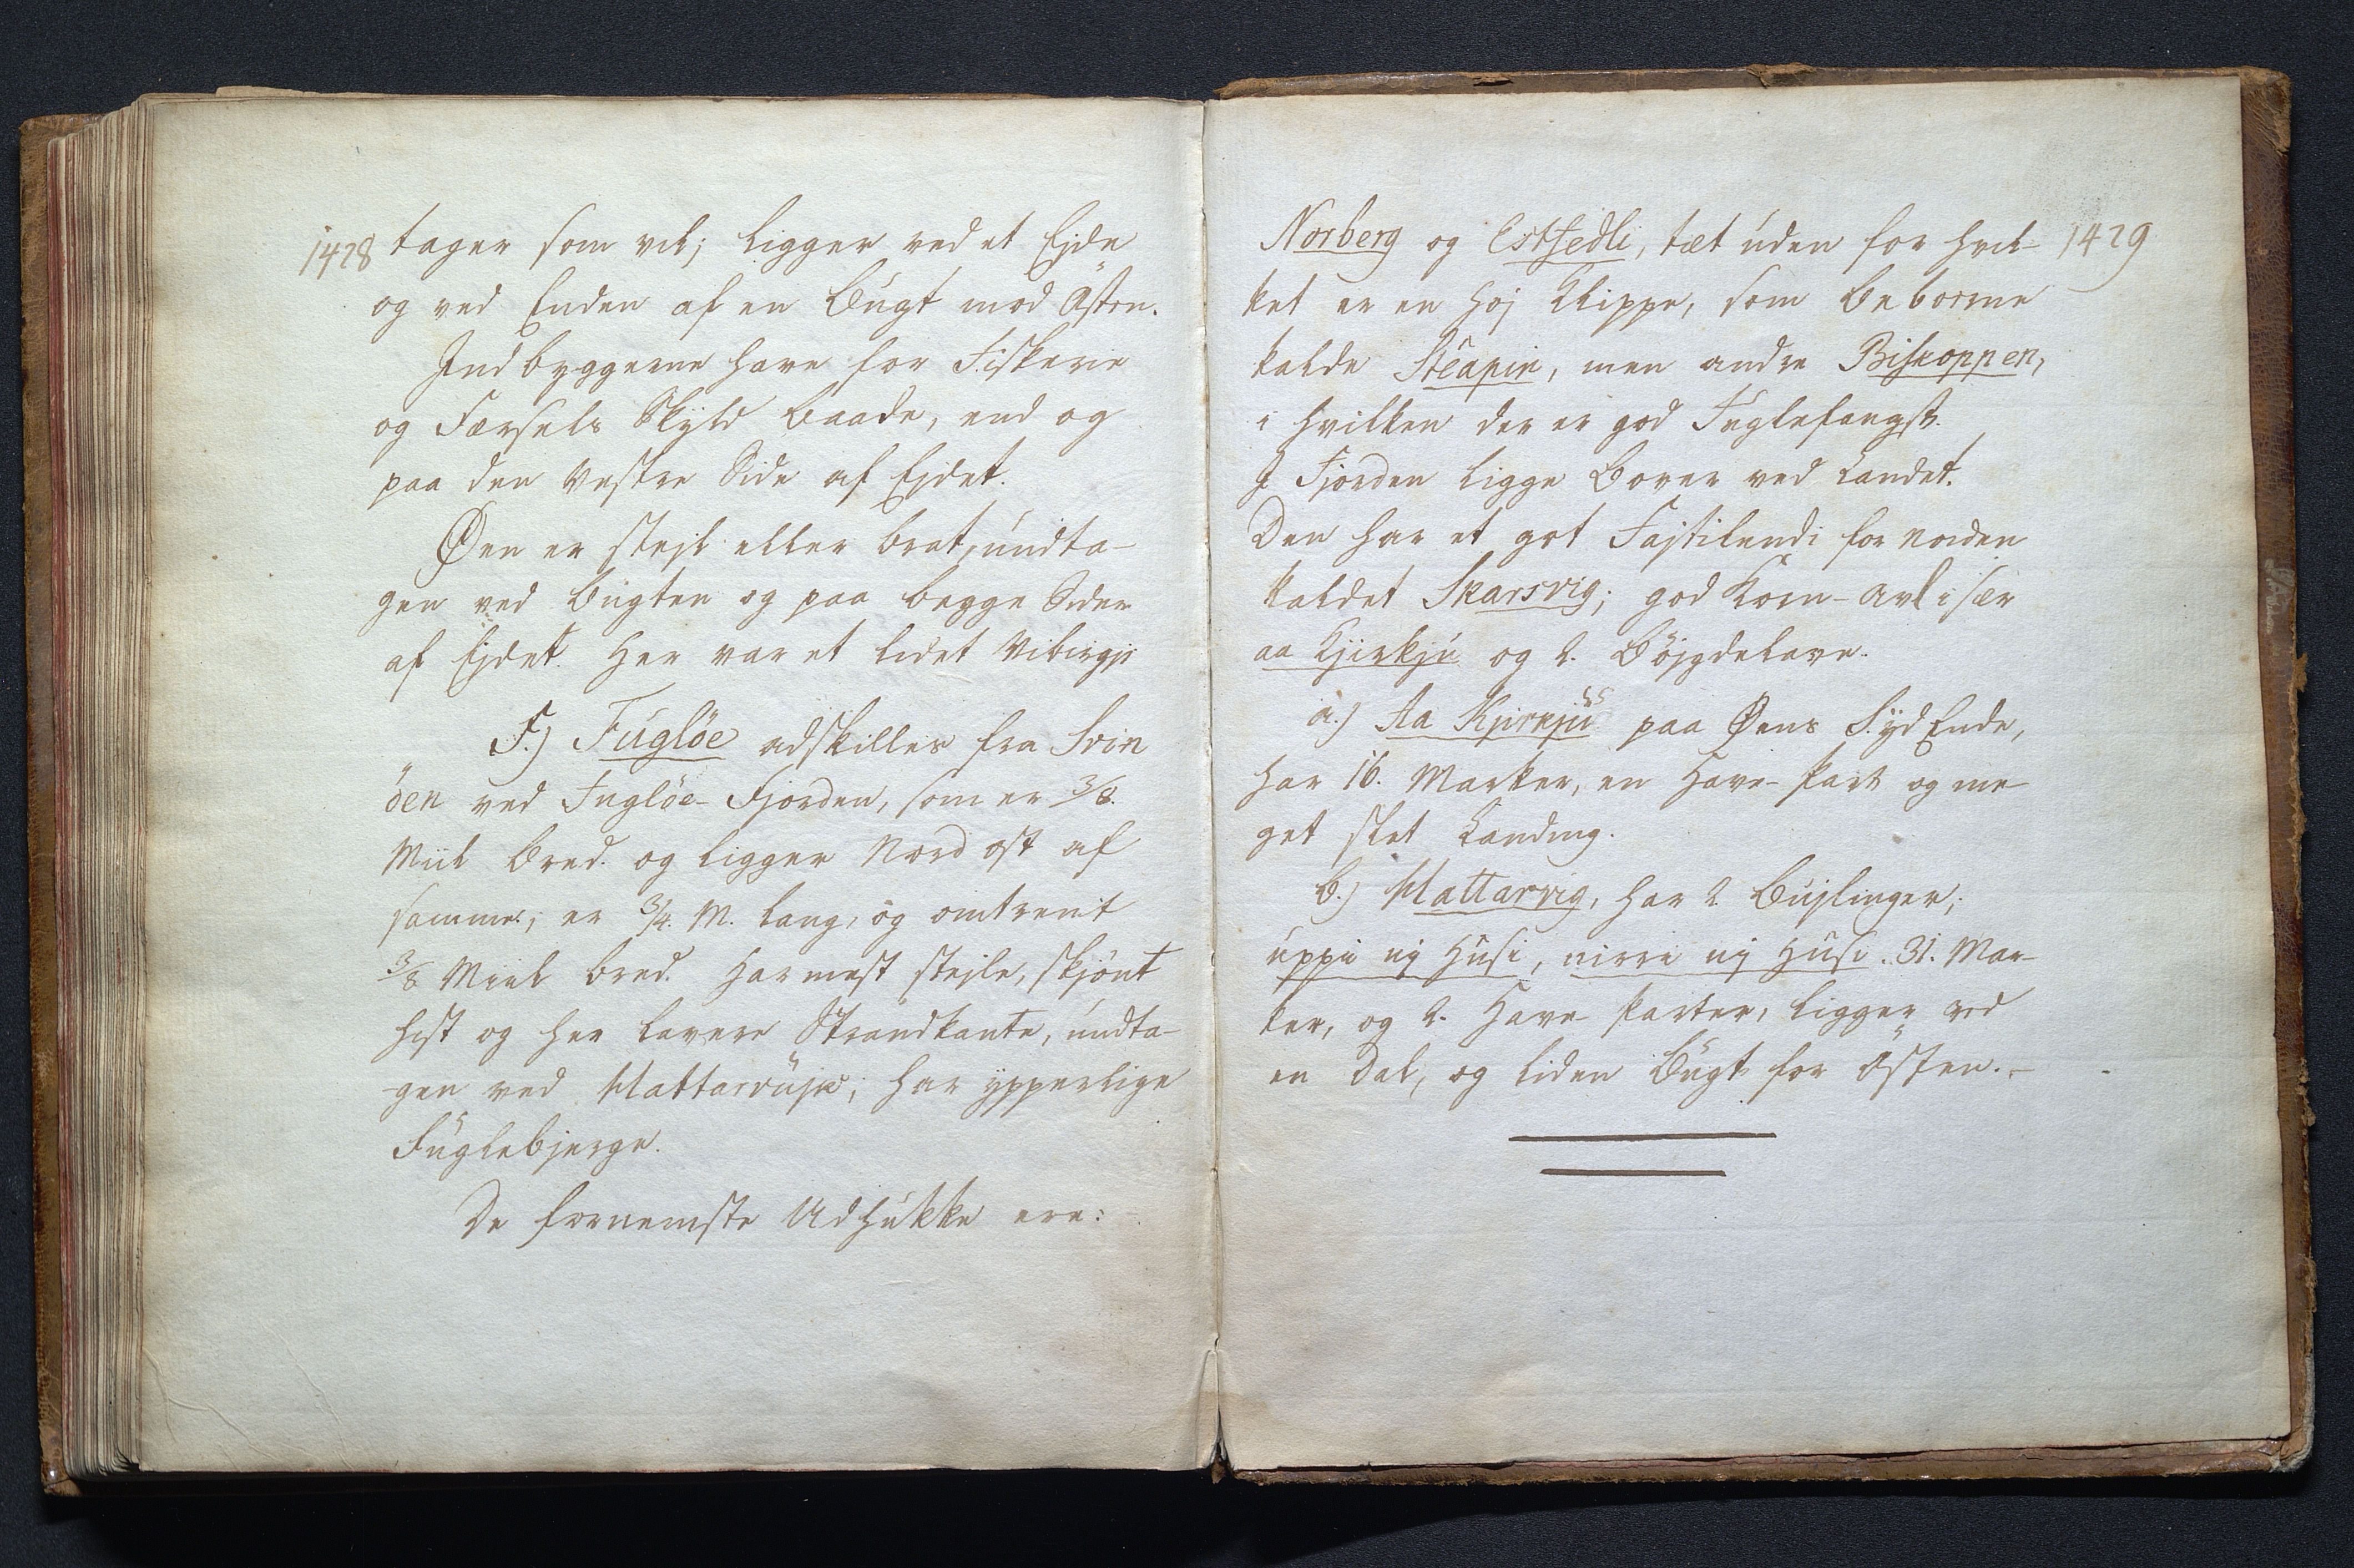 1428
tager som vel; ligger ved et Ejde
og ved Enden af en Bugt mod Østen.
Indbyggerne have for Fiskerie
og Færsels Skyld Baade, end og
paa den vestre Side af Ejdet.
Øen er stejl eller brat, undta-
gen ved Bugten og paa begge Sider
af Ejdet. Her var et lidet Vibirgji
F.) Fuglöe adskilles fra Svin
öen ved Fuglöe-Fjorden, som er 3/8.
Miil Bred. og ligger Nordost af
samme; er 3/4. M. lang, og omtrent
3/8 Miil bred. Har mest stejle, skjönt
hist og her lavere Strandkante, undta-
gen ved Hattarvujk; har ypperlige
Fuglebjerge.
De fornemste Udhukke ere:
1429
Norberg og Estfedli, tæt uden for hvil-
ket er en høj Klippe, som Beboerne
kalde Steapin, men andre Biskoppen,
i hvilken der er god Fuglefangst.
I Fjorden ligge Boer ved Landet.
Den har et got Fastilendi for Norden
kaldet Skarsvig; god Korn-Avl især
aa Kjirkju og 2. Böjgdelave.
a.) Aa Kjirkju paa Øens Syd Ende,
har 16. Marker, en Have-Part og me-
get slet Landing.
b.) Hattarvig, har 2 Bujlinger;
uppi uj Husi, nirri uj Husi. 31. Mar-
ker, og 2. Have Parter, ligger ved
en Dal, og liden Bugt for Östen.-